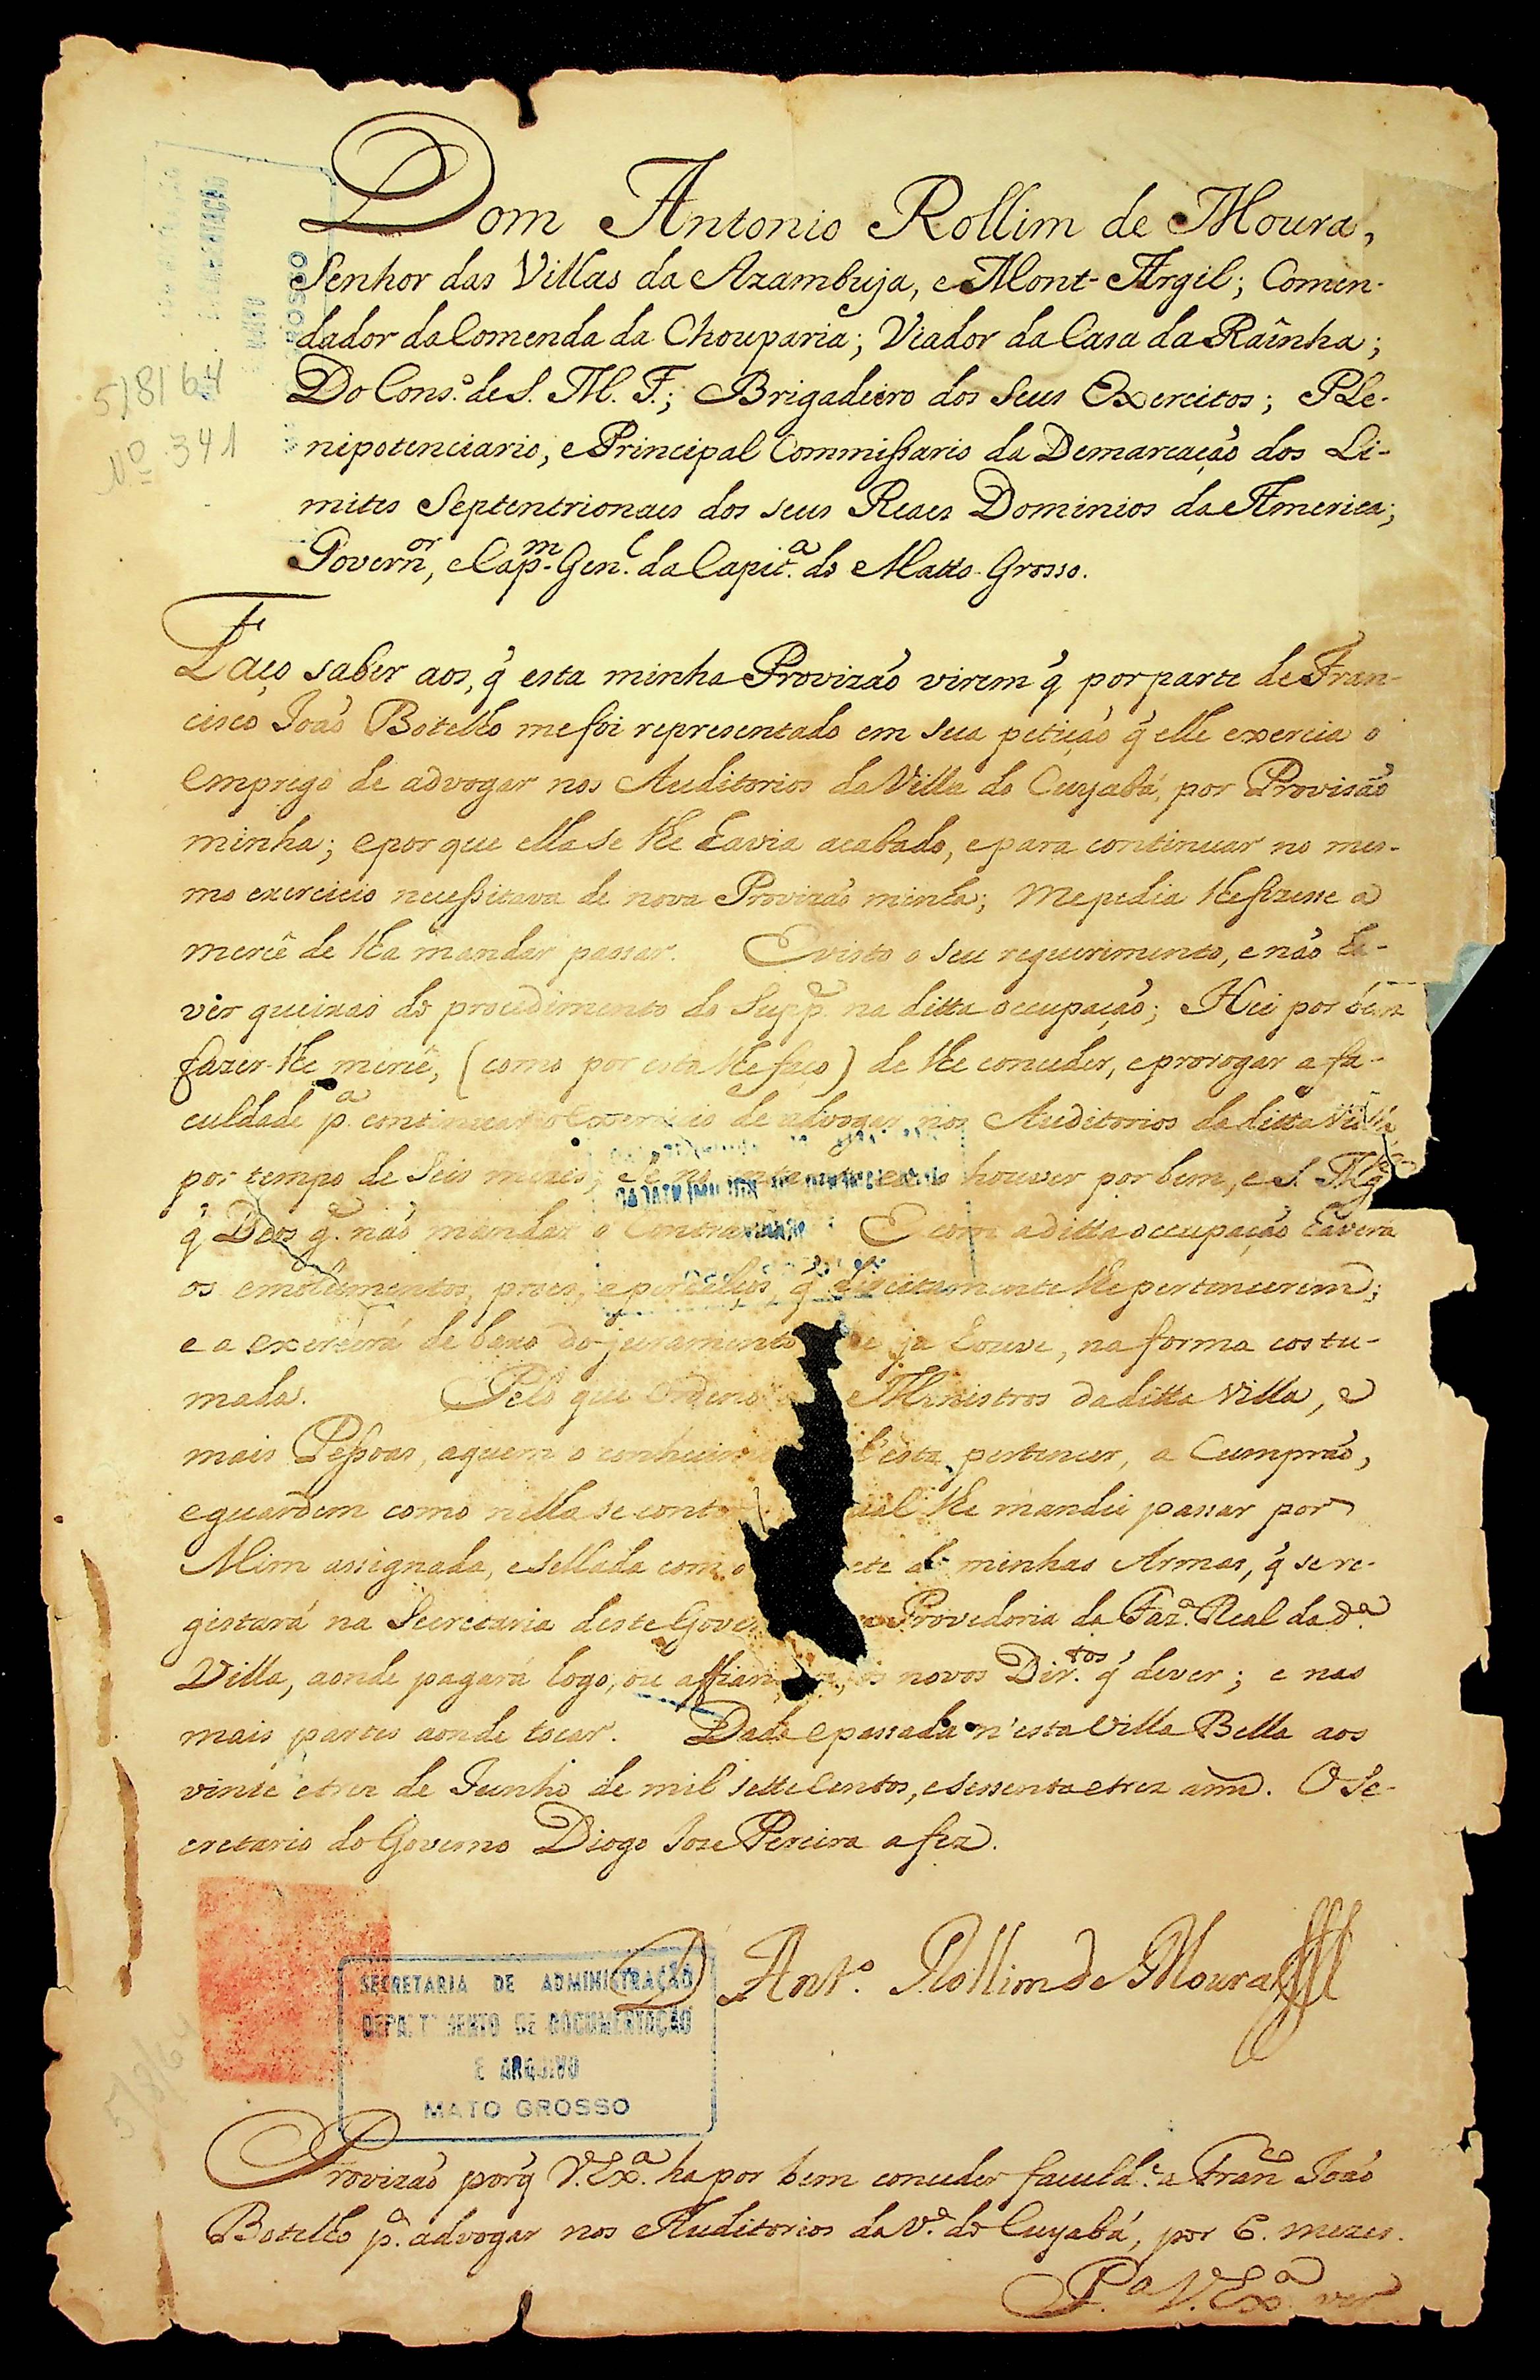 Dom Antonio Rollim de Moura,
Senhor das Villas da Azambuja, e Mont-Argil; Comen-
dador da Comenda da Chouparia; Viador da Casa da Raînha;
Do Cons.º de S. M. F.; Brigadeiro dos Seus Exercitos; Ple-
nipotenciario, e Principal Commissario da Demarcaçaõ dos Li-
mites Septentrionaes dos seus Reaes Dominios da America;
Govern.or, e Cap.m Gen.l da Capit.a do Matto-Grosso.
5/8/64
Nº 341
Faço saber aos, q̃ esta minha Provizaõ virem q̃ por parte de Fran-
cisco Joaõ Botelho me foi representado em sua petiçaõ q̃ elle exercia o
emprego de advogar nos Auditorios da Villa do Cuyabá, por Provisaõ
minha; e por que ella se lhe havia acabado, e para continuar no mes-
mo exercicio necessitava de nova Provizaõ minha; me pedia lhe fizesse a
mercê de lha mandar passar. E visto o seu requerimento, e naõ ha-
ver queixas do procedimento do Supp.e na ditta occupaçaõ; Hei por bem
fazer-lhe mercê, (como por esta lhe faço) de lhe conceder, e prorogar a fa-
culdade p.a continuar o exercicio de advogar nos Auditorios da ditta Villa,
por tempo de seis mezes, se no entretanto eu o houver por bem, e S. Mg.de
q̃ Deos g.e naõ mandar o contrario. E com a ditta occupaçaõ haverá
os emolumentos, proes, e percalços, q̃ direitamente lhe pertencerem;
e a exercerá de baxo do juramento ja houve, na forma costu-
mada. Pelo que Ordeno Ministros da ditta Villa, e
mais Pessoas, a quem o d'esta pertencer, a Cumpraõ,
e guardem como nella se lhe mandei passar por
Mim assignada, e sellada com o de minhas Armas, q̃ se re-
gistará na Secretaria deste Provedoria da Faz.a Real da d.a
Villa, aonde pagará logo, ou os novos Dir.tos q̃ dever; e nas
mais partes aonde tocar. Dada e passada n'esta Villa Bella aos
vinte e trez de Junho de mil sette centos, e sessenta e trez annos. O Se-
cretario do Governo Diogo Joze Pereira a fez.
D Ant.º Rollim de Moura
SECRETARIA DE ADMINISTRAÇÃO
DEPARTAMENTO DE DOCUMENTAÇÃO
E ARQUIVO
MATO GROSSO
5/8/64
Provizaõ porq̃ V. Ex.a ha por bem conceder faculd.e a Fran.co Joaõ
Botelho p.a advogar nos Auditorios da V.a do Cuyabá, por 6. mezes.
P.a V. Ex.a ver